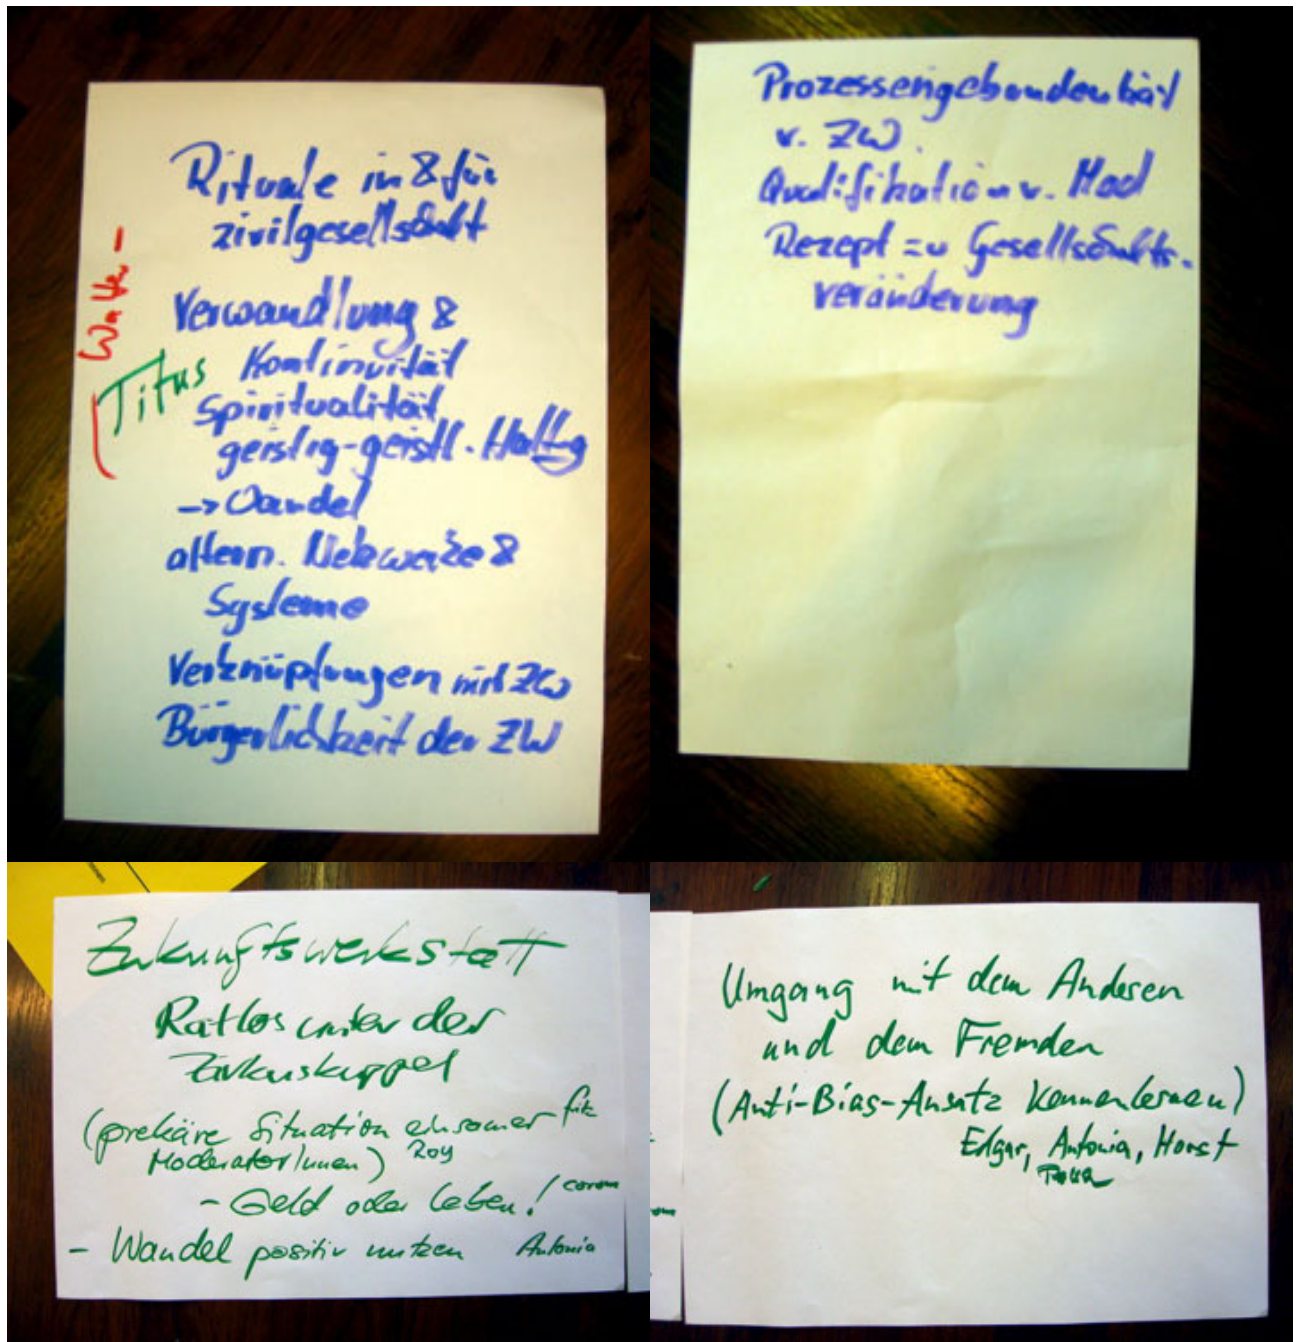 Rituale in & für
zivilgesellschaft
Verwandlung &
Kontinuität
Spiritualität
geistig-geistl. Haltg
-> Wandel
altern. Netzwerke &
Systeme
Verknüpfungen mit ZW
Bürgerlichkeit der ZW
Titus
Prozessengebundenheit
v. ZW.
Qualifikation v. Mod
Rezept zu Gesellschafts-
veränderung
Zukunftswerkstatt
Ratlos unter der
Zirkuskuppel
(prekäre Situation einsamer
ModeratorInnen) Roy
- Geld oder Leben!
- Wandel positiv nutzen Antonia
Umgang mit dem Anderen
und dem Fremden
(Anti-Bias-Ansatz kennenlernen)
Edgar, Antonia, Horst